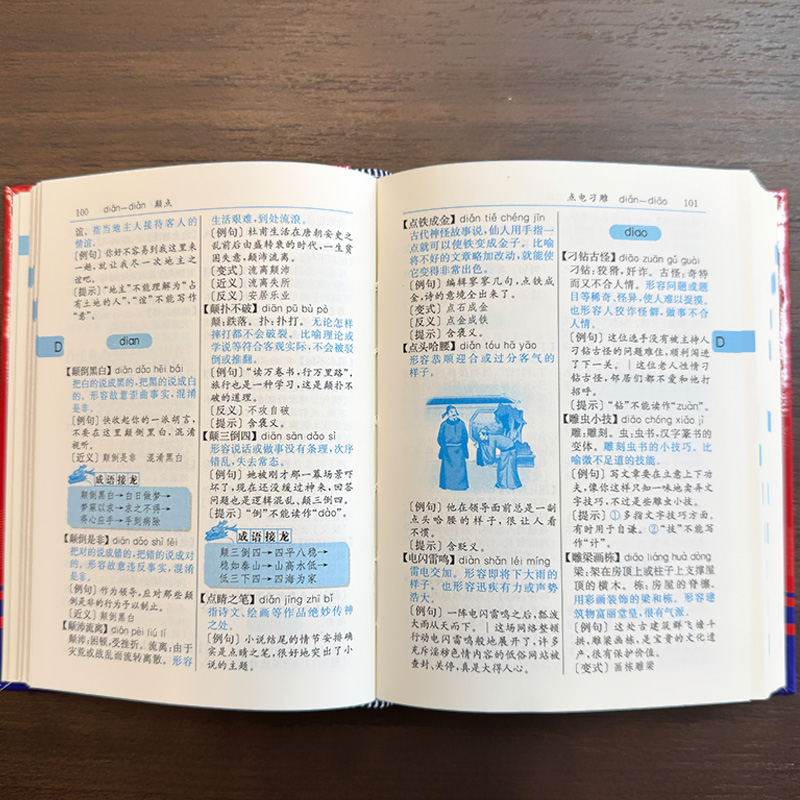 100 diān—diǎn 颠点
谊，指当地主人接待客人的
情谊。
[例句] 你好不容易到我这里来
一趟，就让我尽一次地主之
谊吧。
[提示] “地主”不能理解为“占
有土地的人”。“谊”不能写作
“意”。
D
dian
【颠倒黑白】diān dǎo hēi bái
把白的说成黑的，把黑的说成白
的。形容故意歪曲事实，混淆
是非。
[例句] 快收起你的一派胡言，
不要在这里颠倒黑白，混淆
视听。
[近义] 颠倒是非 混淆黑白
成语接龙
颠倒黑白→白日做梦→
梦寐以求→求之不得→
得心应手→手到病除
【颠倒是非】diān dǎo shì fēi
把对的说成错的，把错的说成对
的。形容故意违反事实，混淆
是非。
[例句] 作为领导，应对那些颠
倒是非的行为予以制止。
[近义] 颠倒黑白
【颠沛流离】diān pèi liú lí
颠沛：困顿，受挫折。流离：由于
灾荒或战乱而流转离散。形容
生活艰难，到处流浪。
[例句] 杜甫生活在唐朝安史之
乱前后由盛转衰的时代，一生贫
困失意，颠沛流离。
[变式] 流离颠沛
[近义] 流离失所
[反义] 安居乐业
【颠扑不破】diān pū bù pò
颠：跌落。扑：扑打。无论怎样
摔打都不会破裂。比喻理论或
学说等符合客观实际，不会被驳
倒或推翻。
[例句] “读万卷书，行万里路”，
旅行也是一种学习，这是颠扑不
破的道理。
[反义] 不攻自破
[提示] 含褒义。
【颠三倒四】diān sān dǎo sì
形容说话或做事没有条理，次序
错乱，失去常态。
[例句] 她被刚才那一幕场景吓
坏了，现在还没缓过神来，回答
问题也是逻辑混乱、颠三倒四。
[提示] “倒”不能读作“dào”。
成语接龙
颠三倒四→四平八稳→
稳如泰山→山高水低→
低三下四→四海为家
【点睛之笔】diǎn jīng zhī bǐ
指诗文、绘画等作品绝妙传神
之处。
[例句] 小说结尾的情节安排确
实是点睛之笔，很好地突出了小
说的主题。
点电刁雕 diǎn—diāo 101
【点铁成金】diǎn tiě chéng jīn
古代神怪故事说，仙人用手指一
点就可以使铁变成金子。比喻
将不好的文章略加改动，就能使
它变得非常出色。
[例句] 编辑寥寥几句，点铁成
金，诗的意境全出来了。
[变式] 点石成金
[反义] 点金成铁
[提示] 含褒义。
【点头哈腰】diǎn tóu hā yāo
形容恭顺迎合或过分客气的
样子。
[例句] 他在领导面前总是一副
点头哈腰的样子，很让人看
不惯。
[提示] 含贬义。
【电闪雷鸣】diàn shǎn léi míng
雷电交加。形容即将下大雨的
样子。也形容迅疾有力或声势
浩大。
[例句] 一阵电闪雷鸣之后，瓢泼
大雨从天而下。｜这场网络整顿
行动电闪雷鸣般地展开了，许多
充斥淫秽色情内容的低俗网站被
查封、关停，真是大得人心。
diao
【刁钻古怪】diāo zuān gǔ guài
刁钻：狡猾，奸诈。古怪：奇特
而又不合人情。形容问题或题
目等稀奇、怪异，使人难以捉摸。
也形容人狡诈怪僻，做事不合
人情。
[例句] 这位选手没有被主持人
刁钻古怪的问题难住，顺利闯进
了下一关。｜这位老人性情刁
钻古怪，邻居们都不爱和他打
招呼。
[提示] “钻”不能读作“zuàn”。
D
【雕虫小技】diāo chóng xiǎo jì
雕：雕刻。虫：虫书，汉字篆书的
变体。雕刻虫书的小技巧。比
喻微不足道的技能。
[例句] 写文章要在立意上下功
夫，像你这样只知一味地卖弄文
字技巧，不过是些雕虫小技。
[提示] ①多指文字技巧方面，
有时用于自谦。②“技”不能写
作“计”。
【雕梁画栋】diāo liáng huà dòng
梁：架在房顶上或柱子上支撑屋
顶的横木。栋：房屋的脊檩。
用彩画装饰的梁和栋。形容建
筑物富丽堂皇，很有气派。
[例句] 这处古建筑群飞檐斗
拱，雕梁画栋，是宝贵的文化遗
产，很有保护价值。
[变式] 画栋雕梁